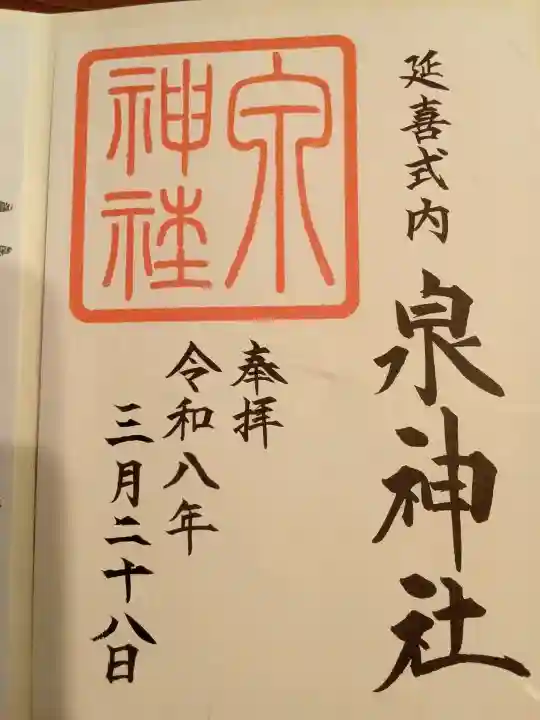 延喜式内
泉神社
泉
神社
奉拝
令和八年
三月二十八日